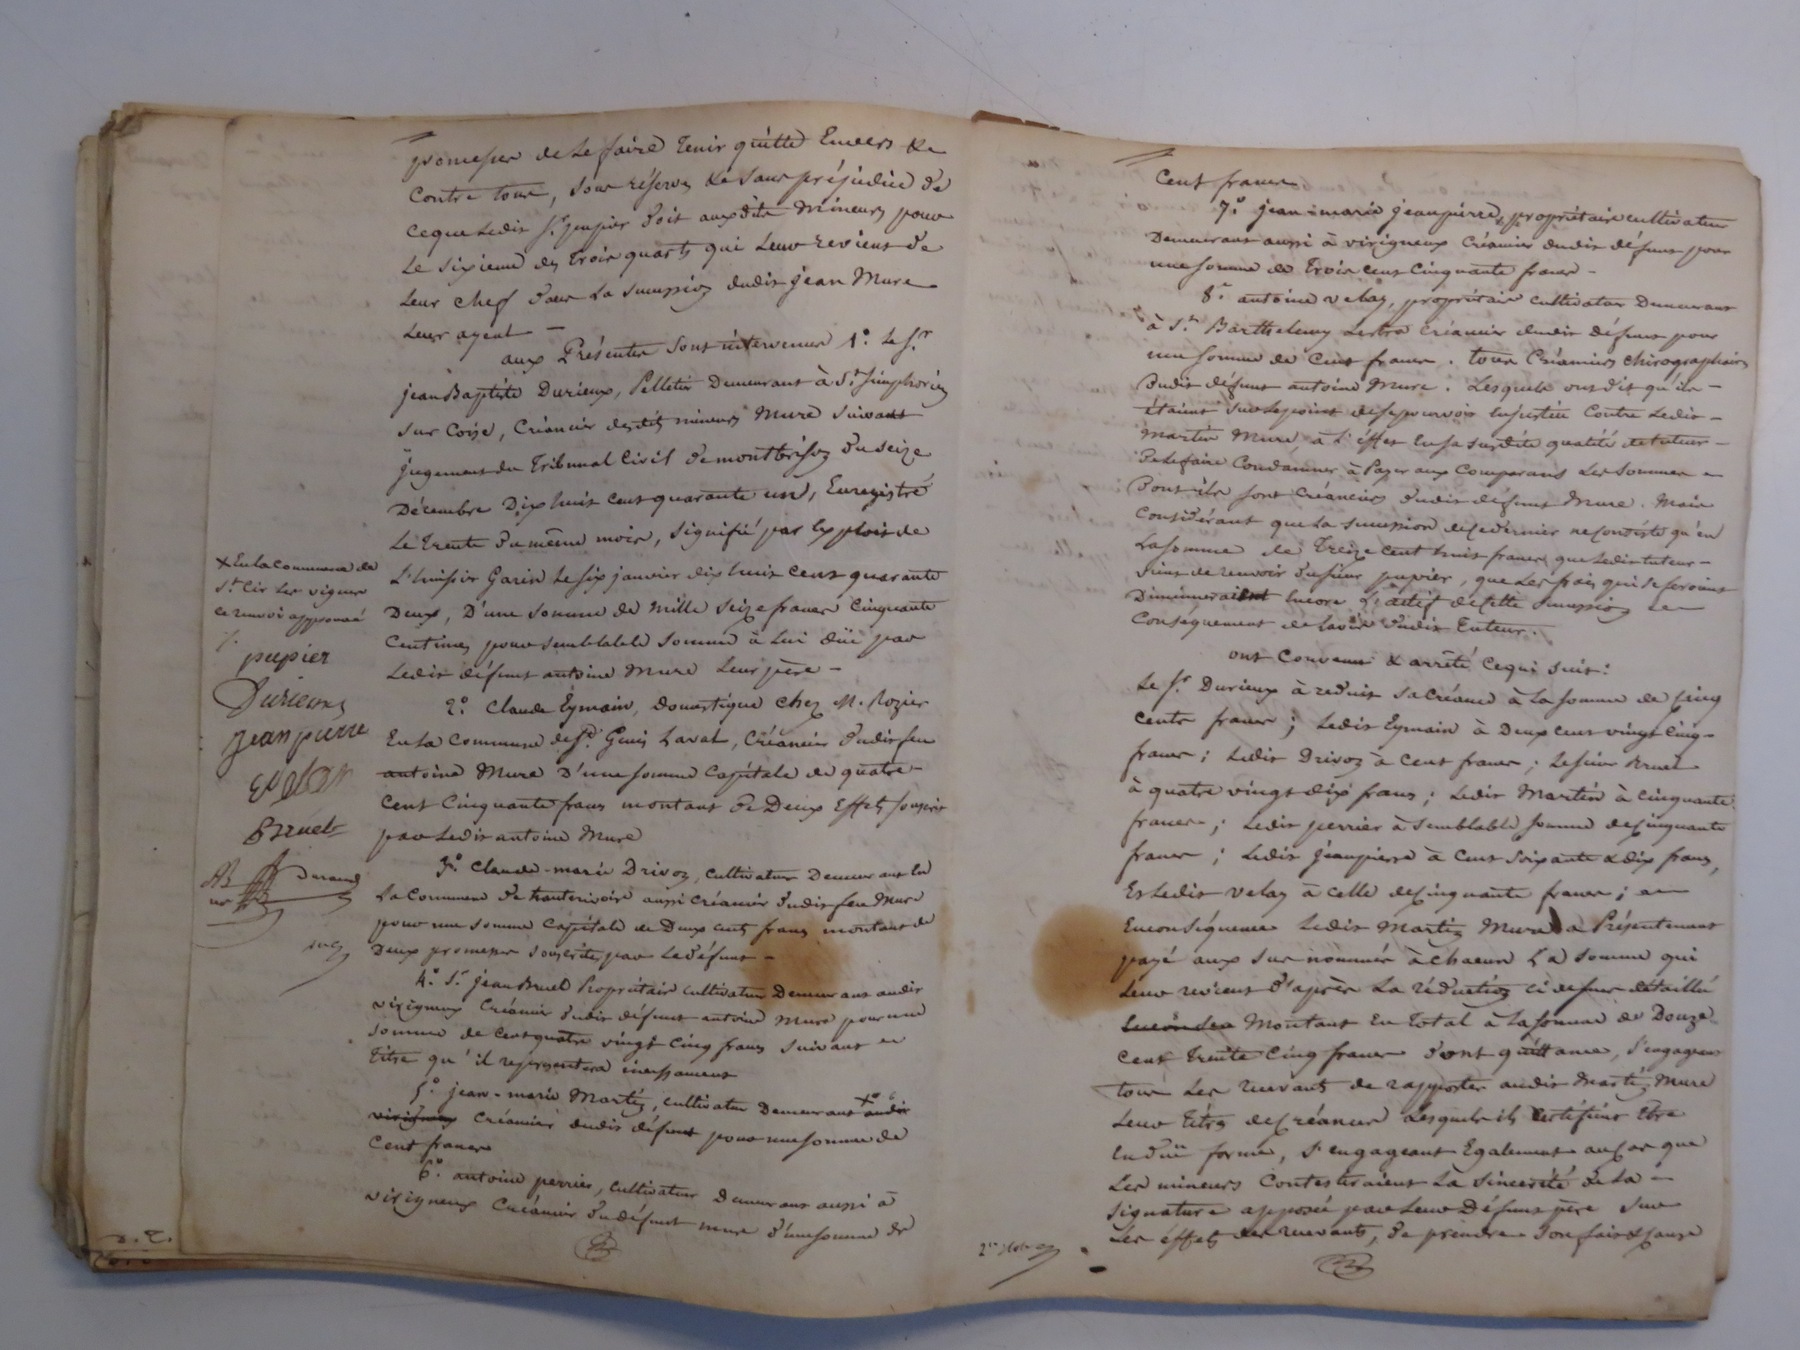 promesses de le faire tenir quitte Envers &
contre tous, sous réserve & sans préjudice de
ceque Ledit Sr. pupier doit auxdits Mineurs pour
Le sixieme des trois quarts qui Leur revient de
Leur chef dans La succession dudit jean Mure
Leur ayeul —
aux Présentes sont intervenus 1° Le Sr.
jean Baptiste Durieux, Pelletier Demeurant à St. Simphorien
sur Coise, Créancier desdits mineurs Mure suivant
jugement du Tribunal Civil de montbrison du seize
Décembre Dix huit cent quarante un, Enregistré
Le trente du même mois, signifié par Exploit de
L'huissier Garin Le six janvier dix huit cent quarante
Deux, D'une somme de Mille seize francs Cinquante
Centimes pour semblable somme à Lui düe par
Ledit défunt antoine Mure Leur père —
2° Claude Eymain, domestique chez M. Rozier
En La Commune de St. Genis Laval, Créancier dudit feu
antoine Mure D'une somme Capitale de quatre
cent Cinquante francs montant de Deux Effets souscrit
par Ledit antoine Mure
3° Claude-marie Drivon, cultivateur Demeurant En
La Commune de hauterivoire aussi créancier dudit feu Mure
pour une somme Capitale de Deux cents francs montant de
Deux promesses souscrites par Le défunt —
4° Sr. jean Bruel Propriétaire cultivateur Demeurant audit
virigneux Créancier dudit défunt antoine Mure pour une
somme de cent quatre vingt Cinq francs suivant
titre qu'il representera incessament
5° jean-marie Martin, cultivateur Demeurant + audit
virigneux Créancier dudit défunt pour une somme de
cent francs
6° antoine perrier, cultivateur Demeurant aussi à
virigneux Créancier du défunt mure d'une somme de
+ En La commune de
St. Cir Les vignes
ce renvoi approuvé
pupier
Durieux
jean pierre
Bruel
Durand
cent francs
7° jean-marie jeanpierre, propriétaire cultivateur
Demeurant aussi à virigneux Créancier dudit défunt pour
une somme de trois cent Cinquante francs —
8° antoine velay, propriétaire cultivateur Demeurant
à St. Barthelemy Lestra créancier dudit défunt pour
une somme de Cent francs. tous Créanciers chirographaires
dudit défunt antoine Mure. Lesquels ont dit qu'ils —
étaient sur le point de se pourvoir En justice Contre Ledit —
Martin Mure, à L'éffet En sa susdite qualité de tuteur —
De le faire Condamner à Payer aux Comparans Les sommes
Dont ils sont Créanciers dudit défunt Mure. Mais
Considérant que La succession de ce dernier ne consiste qu'en
La somme de treize cent huit francs que Ledit tuteur —
vient de recevoir du sieur pupier, que Les frais qui se feroient
Diminueraient Encore L'actif de cette succession
Consequement de L'avoir dudit Tuteur.
ont Convenu & arrêté Ce qui suit:
Le Sr. Durieux à reduit sa Créance à La somme de Cinq
cents francs; Ledit Eymain à Deux cent vingt cinq-
francs; Ledit Drivon à cent francs; Le sieur Bruel
à quatre vingt dix francs; Ledit Martin à Cinquante
francs; Ledit perrier à semblable somme de cinquante
francs; Ledit jeanpierre à cent soixante & dix francs,
Et Ledit velay à celle de cinquante francs;
En conséquence Ledit Martin Mure a Présentement
payé aux sus nommés à chacun La somme qui
Leur revient d'après La réduction ci dessus détaillée
Montant En total à La somme de Douze
cent trente Cinq francs dont quittance, s'engageant
tous Les recevants de rapporter audit Martin Mure
Leur titres de créances Lesquels ils certifient être
En düe forme, s'engageant Egalement au cas que
Les mineurs Contesteraient La sincerité de La —
signature apposée par Leur Défunt père sur
Les éffets des recevants, de prendre son fait & cause